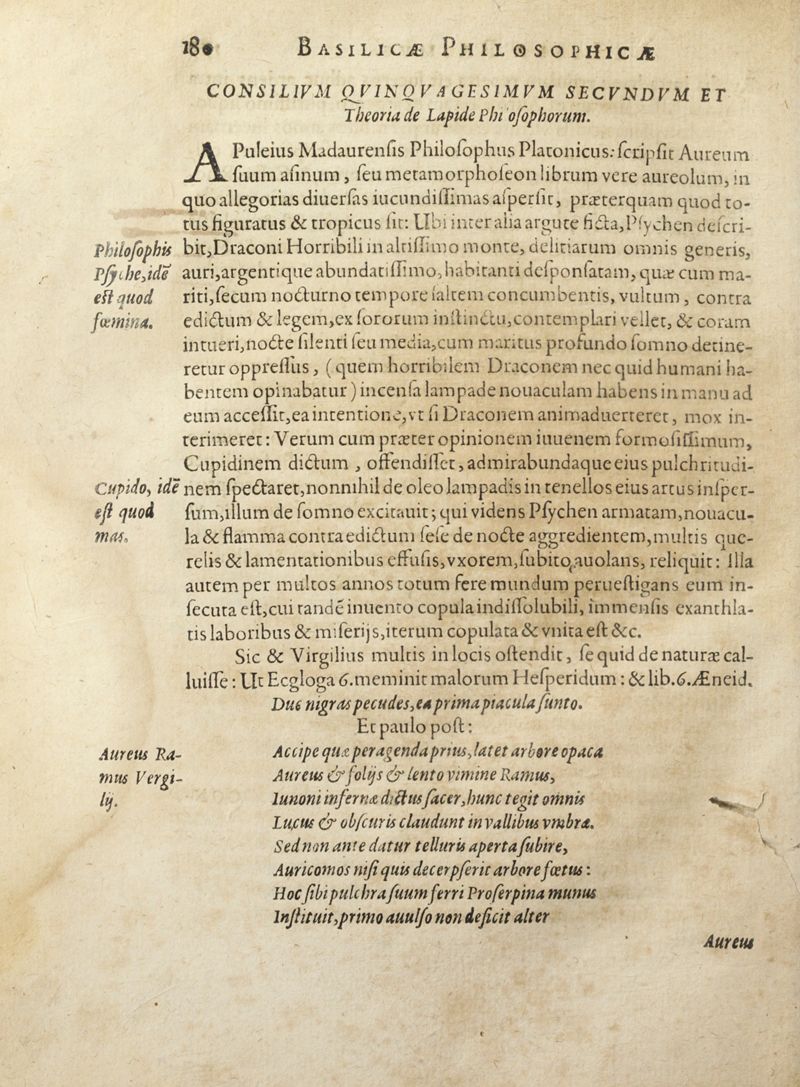 180 BASILICÆ PHILOSOPHICÆ
CONSILIVM QVINQVAGESIMVM SECVNDVM ET
Theoria de Lapide Philosophorum.
APuleius Madaurenſis Philoſophus Platonicus: ſcripſit Aureum
ſuum aſinum, ſeu metamorphoſeon librum vere aureolum, in
quo allegorias diuerſas iucundiſſimas aſperſit, præterquam quod to-
tus figuratus & tropicus ſit: Ubi inter alia argute ficta, Pſychen deſcri-
Philoſophis bit, Draconi Horribili in altiſſimo monte, delitiarum omnis generis,
Pſyche, idē auri, argentique abundatiſſimo, habitanti deſponſatam, quæ cum ma-
eſt quod riti, ſecum nocturno tempore ſaltem concumbentis, vultum, contra
fœmina. edictum & legem, ex ſororum inſtinctu, contemplari vellet, & coram
intueri, nocte ſilenti ſeu media, cum maritus profundo ſomno detine-
retur oppreſſus, (quem horribilem Draconem nec quid humani ha-
bentem opinabatur) incenſa lampade nouaculam habens in manu ad
eum acceſſit, ea intentione, vt ſi Draconem animaduerteret, mox in-
terimeret: Verum cum præter opinionem iuuenem formoſiſſimum,
Cupidinem dictum, offendiſſet, admirabundaque eius pulchritudi-
Cupido, idē nem ſpectaret, nonnihil de oleo lampadis in tenellos eius artus inſper-
eſt quod ſum, illum de ſomno excitauit; qui videns Pſychen armatam, nouacu-
mas. la & flamma contra edictum ſeſe de nocte aggredientem, multis que-
relis & lamentationibus effuſis, vxorem, ſubito, auolans, reliquit: Illa
autem per multos annos totum fere mundum perueſtigans eum in-
ſecuta eſt, cui tandē inuento copula indiſſolubili, immenſis exanthla-
tis laboribus & miſerijs, iterum copulata & vnita eſt &c.
Sic & Virgilius multis in locis oſtendit, ſe quid de naturæ cal-
luiſſe: Ut Ecgloga 6. meminit malorum Heſperidum: & lib. 6. Æneid.
Duc nigras pecudes, ea prima piacula ſunto.
Et paulo poſt:
Aureus Ra- Accipe quæ peragenda prius, latet arbore opaca
mus Vergi- Aureus & folijs & lento vimine Ramus,
lij. Iunoni infernæ dictus ſacer, hunc tegit omnis
Lucus & obſcuris claudunt in vallibus vmbræ.
Sed non ante datur telluris aperta ſubire,
Auricomos niſi quis decerpſerit arbore fœtus:
Hoc ſibi pulchra ſuum ferri Proſerpina munus
Inſtituit, primo auulſo non deficit alter
Aureus